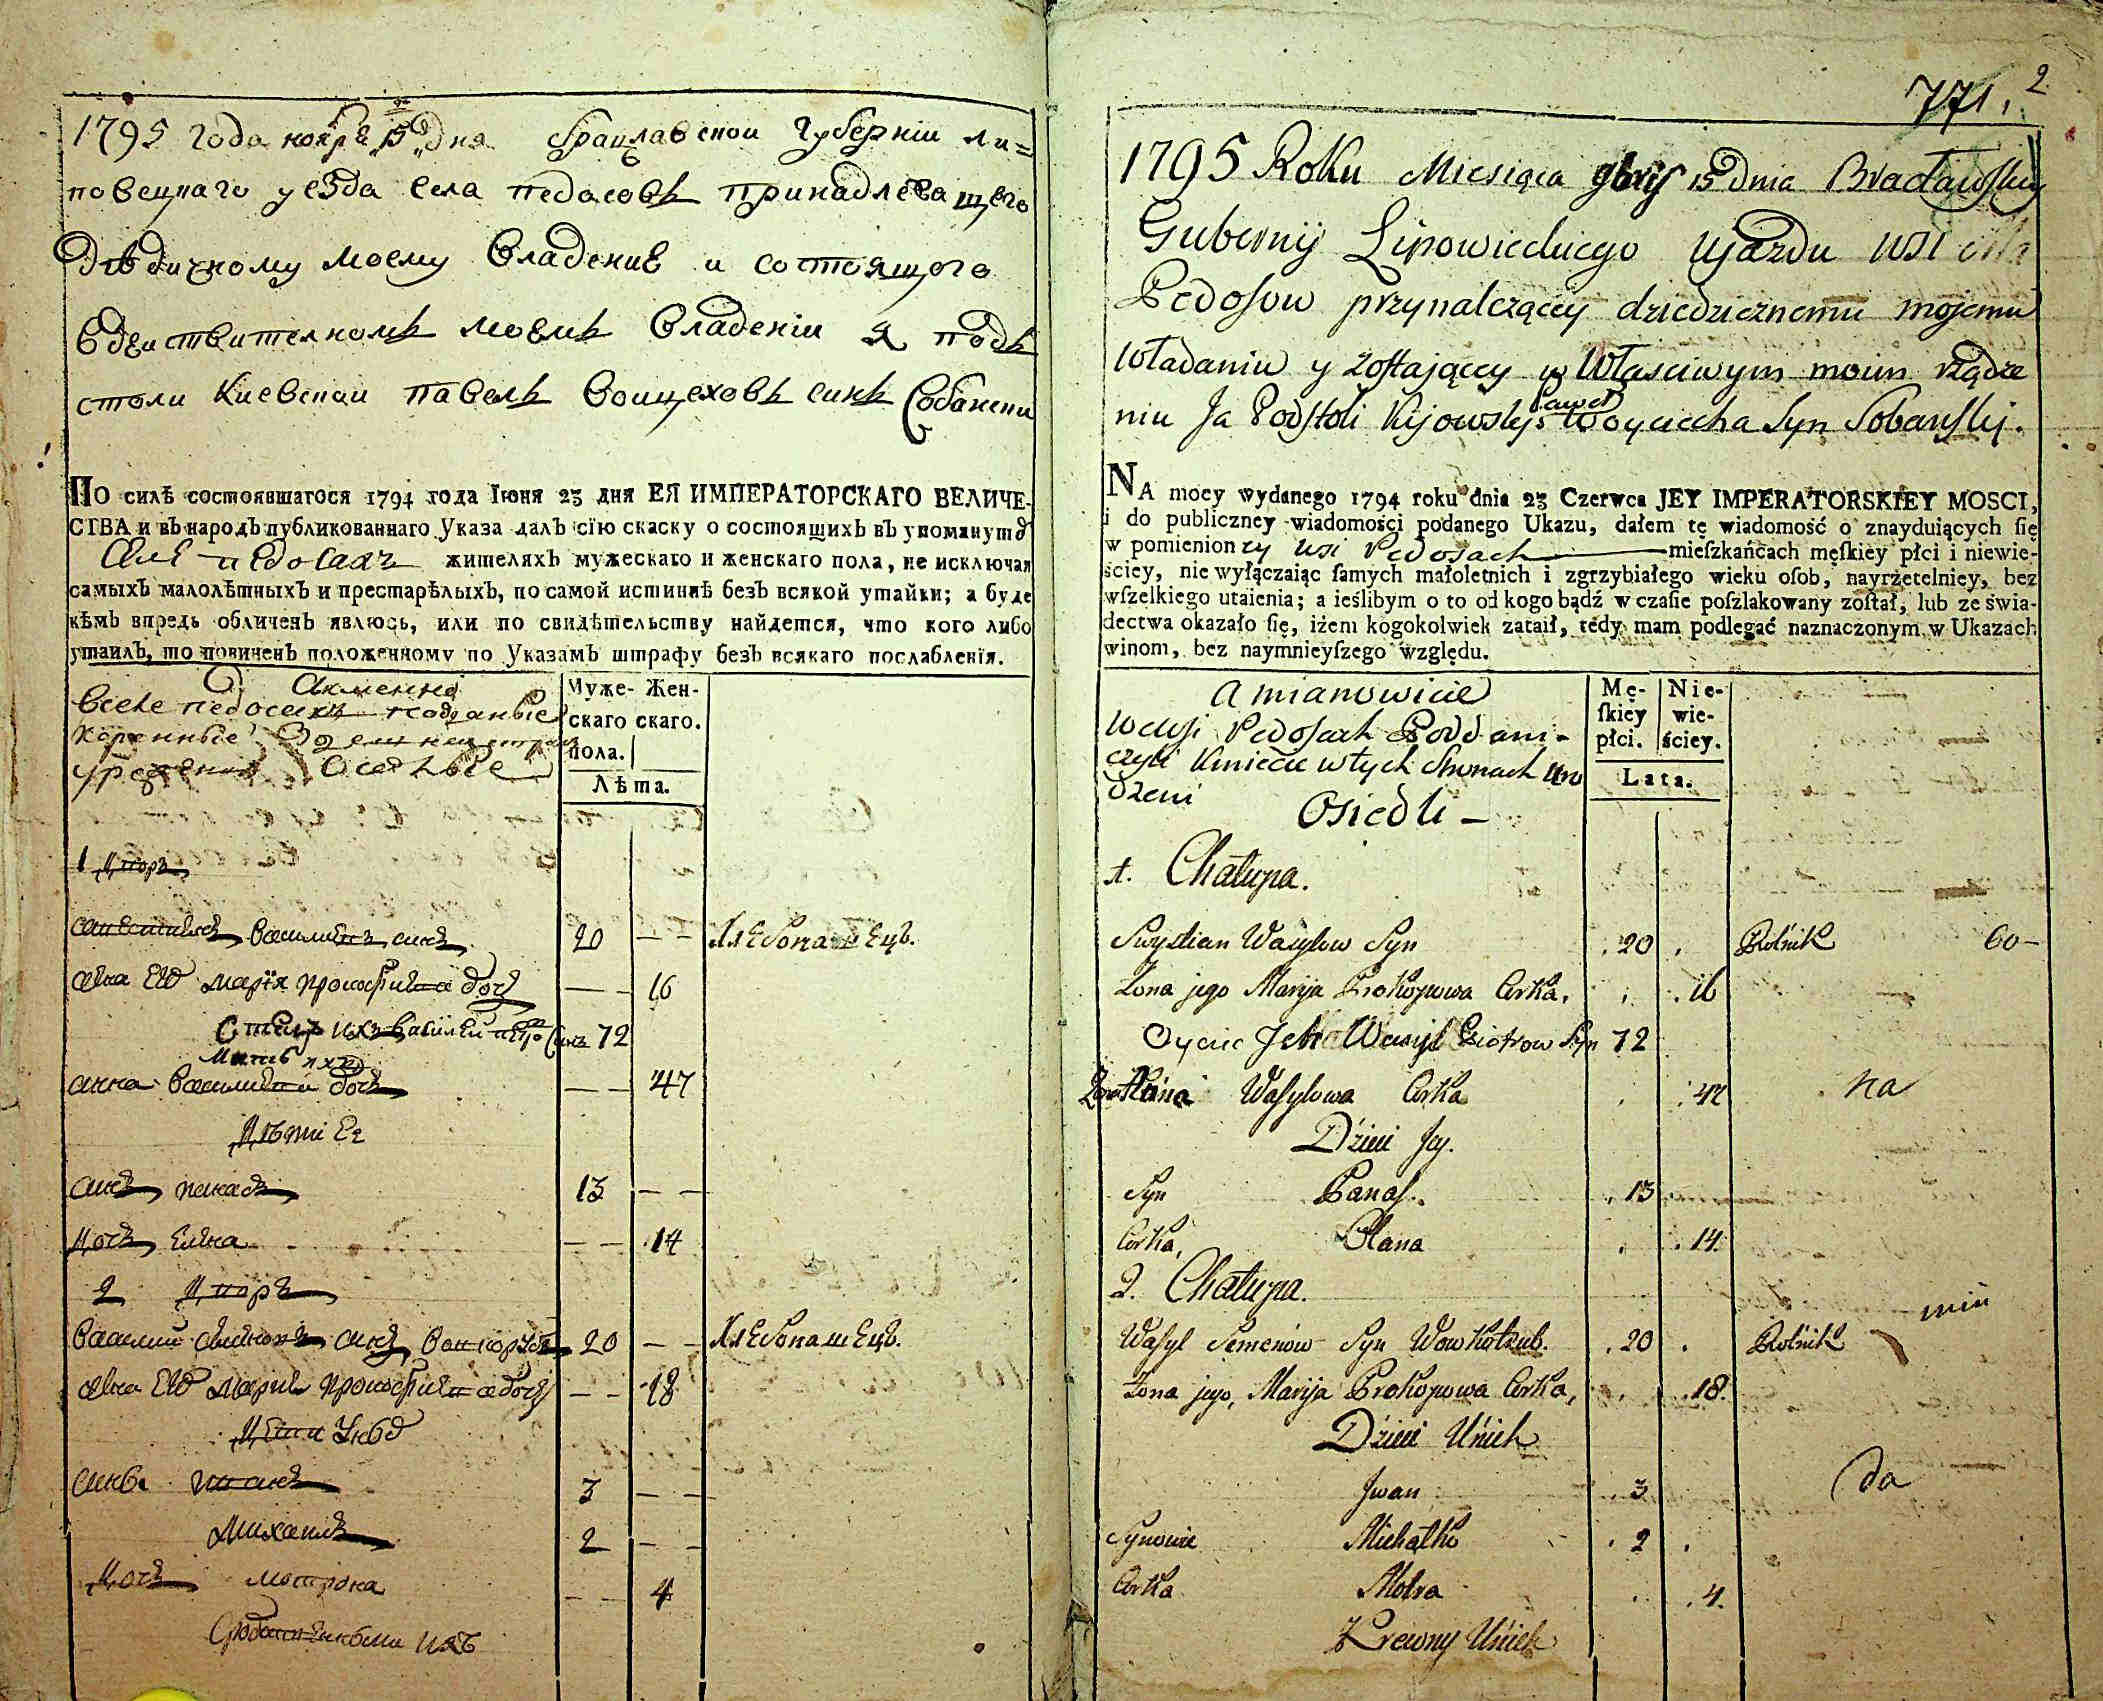 1795 года ноябр 15 дня Брацлавской Губерніи ли=
повецкаго уезда села педосовъ принадлежащего
дѣдичному моему владение и состоящого
вдействителномъ моемъ владеніи я подъ
столи Киевски павелъ воицеховъ синъ Собански
По силѣ состоявшагося 1794 года Іюня 23 дня ЕЯ ИМПЕРАТОРСКАГО ВЕЛИЧЕ-
СТВА и въ народъ публикованнаго Указа далъ сію скаску о состоящихъ въ упомянутѣ
селе педосахъ жителяхъ мужескаго и женскаго пола, не исключая
самыхъ малолѣтныхъ и престарѣлыхъ, по самой истиннѣ безъ всякой утайки; а буде
кѣмъ впредь обличенъ явлюсь, или по свидѣтельству найдется, что кого либо
утаилъ, то повиненъ положенному по Указамъ штрафу безъ всякаго послабленія.
А именно
вселе педосахъ подданые
коренные
оселые
Муже- Жен-
скаго скаго.
пола.
Лѣта.
1 Дворъ
василиевъ синъ 20 — — Хлебопашецъ.
жена его марія прокофиева дочъ — — 16
Отецъ ихъ василей петро синъ 72
Мать ихъ
анна василиева дочъ — — 47
Дѣти Ее
синъ панасъ 13 — —
Дочъ елена — — 14
2 Дворъ
василии семеновъ синъ вовкотрубъ 20 — — Хлебопашецъ.
жена его мария прокофиева дочъ — — 18
Дети
синве иванъ 3 — —
Михаилъ 2 — —
Дочъ мотрона — — 4
Сродственики ихъ
771. 2
1795 Roku Miesiąca 9bris 15 dnia Bracławskiey
Gubernij Lipowieckiego Ujazdu wsi
Pedosow przynależącey dziedzicznemu mojemu
władaniu y zostającey w własciwym moim rządze
niu Ja Podstoli Kijowskij Paweł Woyciecha Syn Sobanskij.
NA mocy wydanego 1794 roku dnia 23 Czerwca JEY IMPERATORSKIEY MOSCI,
i do publiczney wiadomości podanego Ukazu, dałem tę wiadomość o znayduiących ſię
w pomienioney wsi Pedosach mieſzkańcach męſkiey płci i niewie-
ściey, nie wyłączaiąc ſamych małoletnich i zgrzybiałego wieku oſob, nayrzetelniey, bez
wſzelkiego utaienia; a ieślibym o to od kogo bądź w czaſie poſzlakowany zoſtał, lub ze świa-
dectwa okazało ſię, iżem kogokolwiek zataił, tedy mam podlegać naznaczonym w Ukazach
winom, bez naymnieyſzego względu.
a mianowicie
we wsi Pedosach Poddani
czyli Kmiecie w tych Stronach uro
dzeni
Osiedli —
Mę- Nie-
ſkiey wie-
płci. ściey.
Lata.
1. Chałupa.
Swystian Wasylow Syn 20 Rolnik 60 —
Żona jego Marija Prokopowa Corka, 16
Oyciec Jch Wasyl Piotrow Syn 72
Żona Anna Wasylowa Corka 47 na
Dzieci Jey.
Syn Panas. 13
Corka, Olana 14.
2. Chałupa.
min
Wasyl Semenow Syn Wowkotrub. 20 Rolnik
Żona jego, Marija Prokopowa Corka, 18.
Dzieci Unich
Jwan 3 da
Synowie Michałko 2
Corka Motra 4.
Krewny Unich